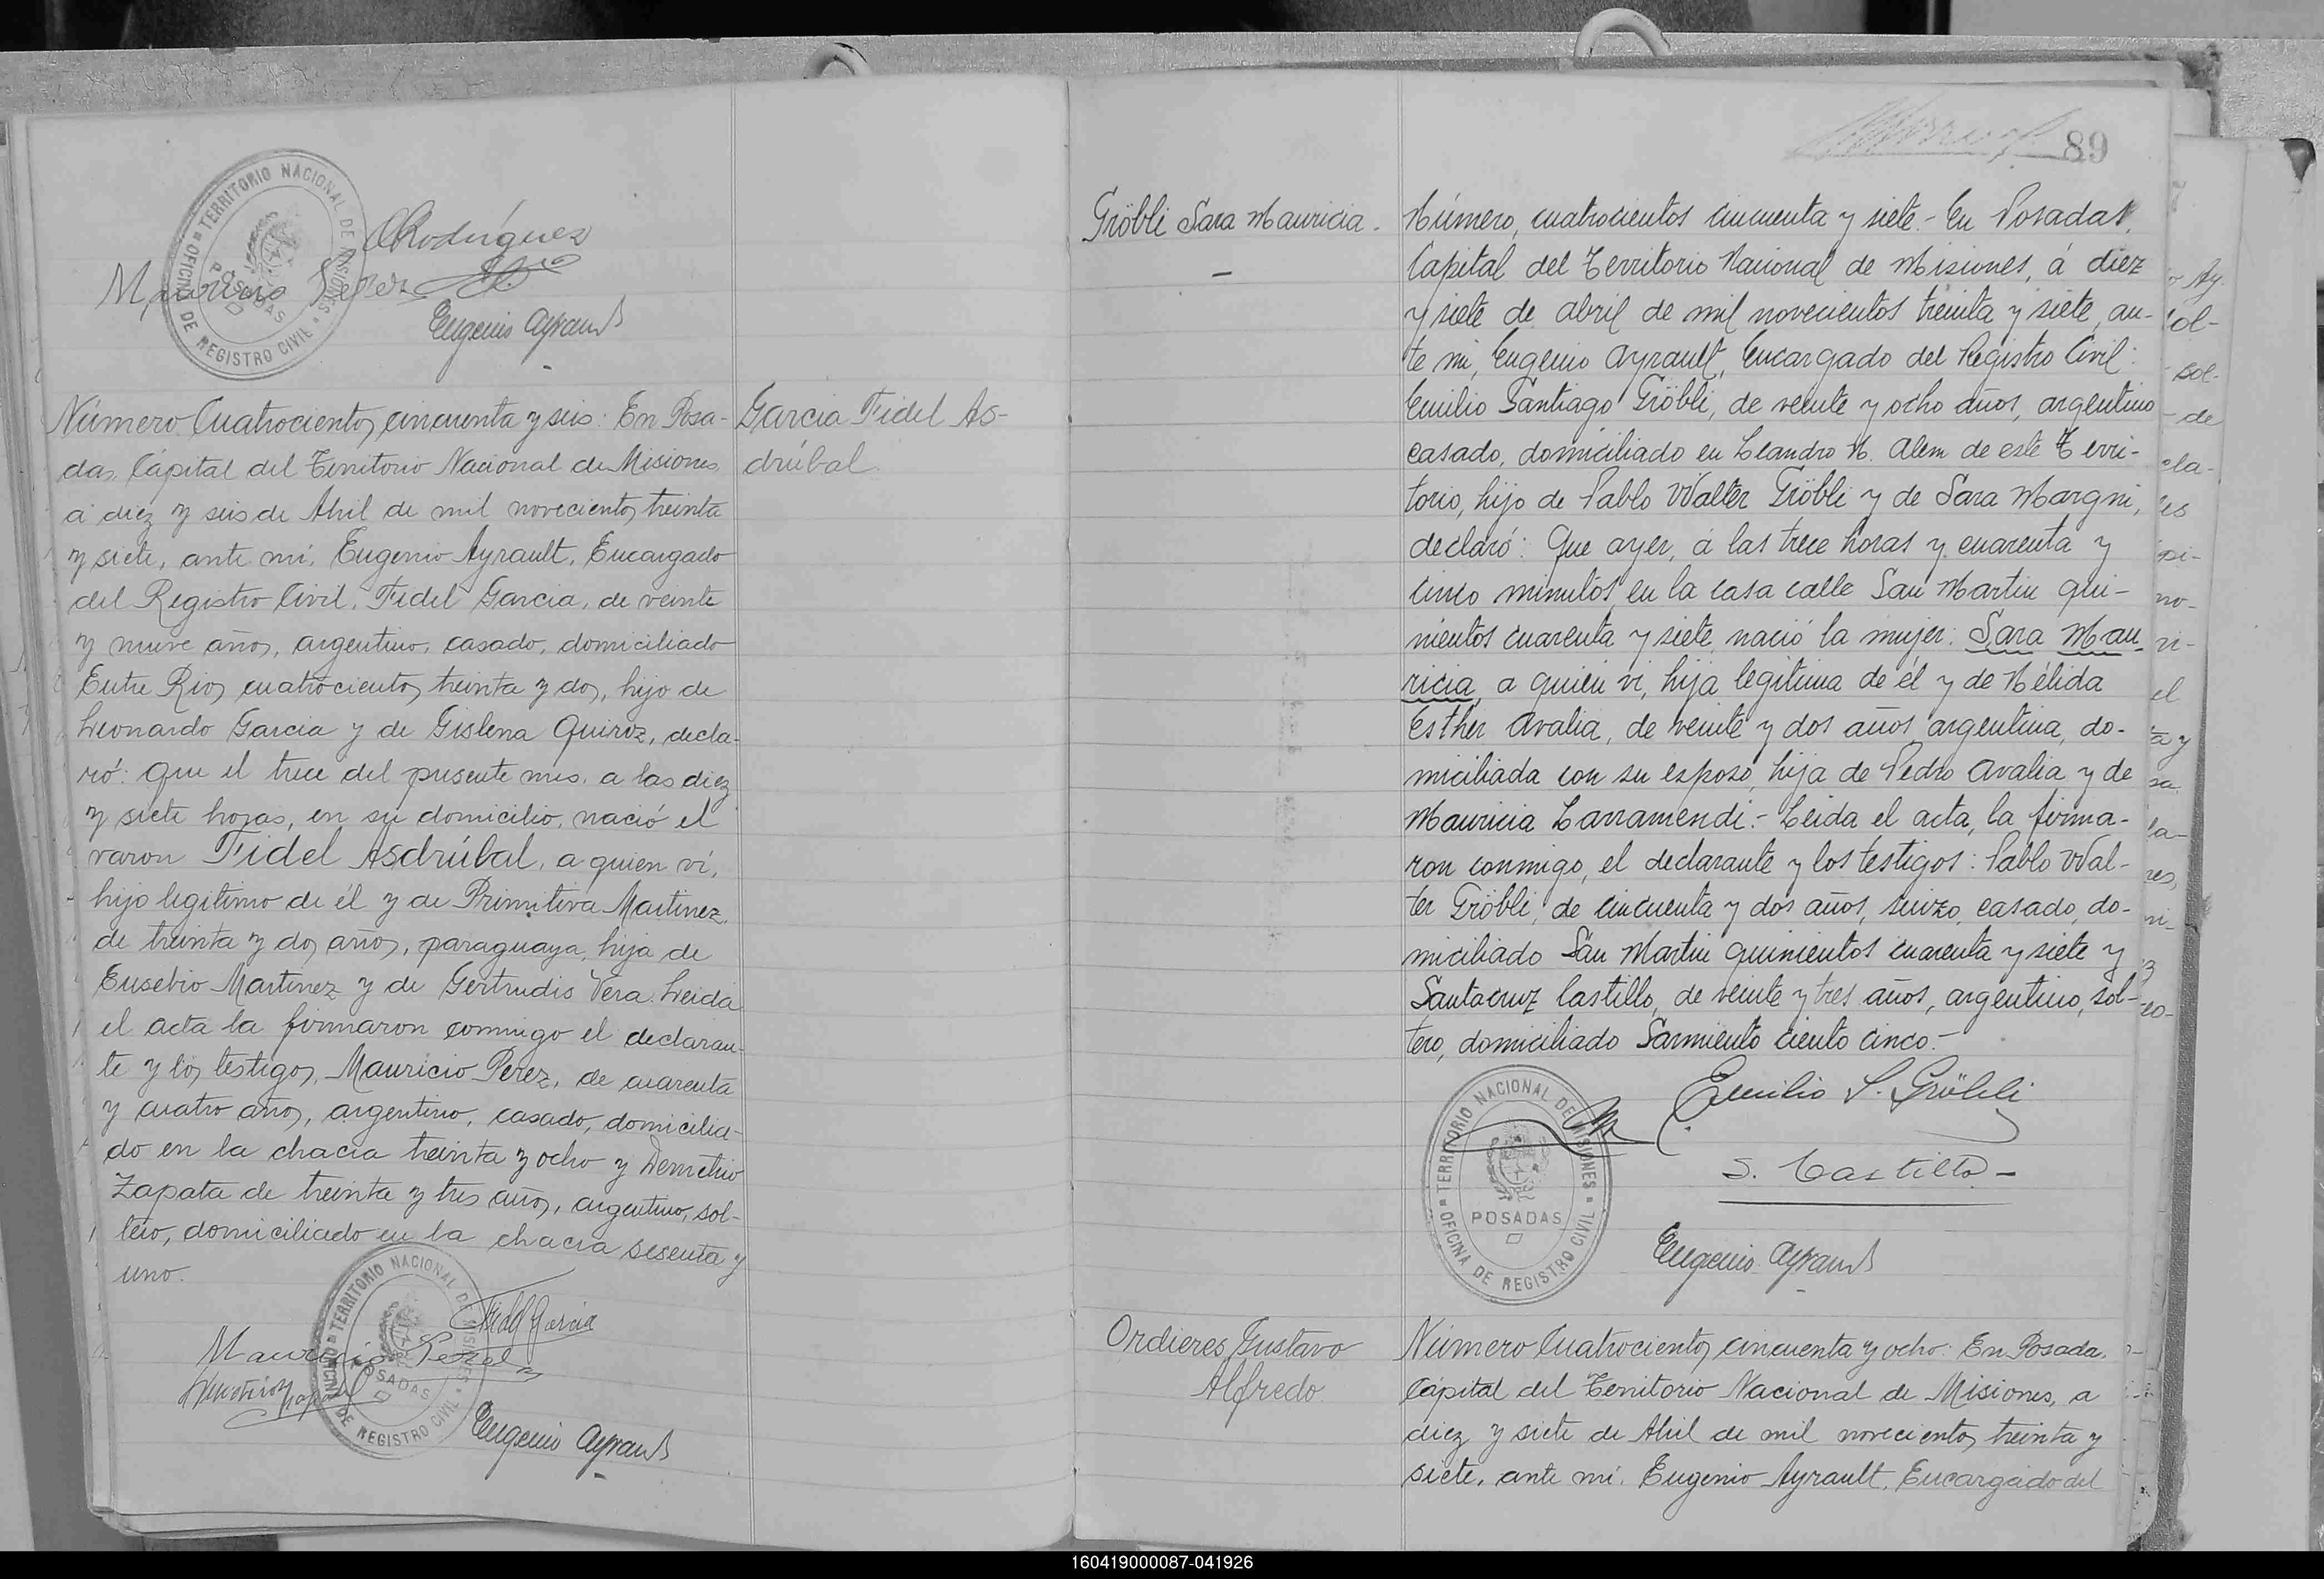 TERRITORIO NACIONAL DE MISIONES
OFICINA DE REGISTRO CIVIL
POSADAS
Rodríguez
Mauricio Perez
Eugenio Ayrault
Número Cuatrocientos cincuenta y seis: En Posa-
das, Cápital del Territorio Nacional de Misiones,
a diez y seis de Abril de mil novecientos treinta
y siete, ante mí, Eugenio Ayrault, Encargado
del Registro Civil, Fidel Garcia, de veinte
y nueve años, argentino, casado, domiciliado
Entre Rios cuatrocientos treinta y dos, hijo de
Leonardo Garcia y de Gislena Quiroz, decla-
ró: Que el trece del presente mes, a las diez
y siete horas, en su domicilio, nació el
varon Fidel Asdrúbal, a quien ví,
hijo legitimo de él y de Primitiva Martinez,
de treinta y dos años, paraguaya, hija de
Eusebio Martinez y de Gertrudis Vera. Leida
el acta la firmaron conmigo el declaran-
te y los testigos, Mauricio Perez, de cuarenta
y cuatro años, argentino, casado, domicilia-
do en la chacra treinta y ocho y Demetrio
Zapata de treinta y tres años, argentino, sol-
tero, domiciliado en la chacra sesenta y
uno.
Garcia Fidel As-
drúbal
TERRITORIO NACIONAL DE MISIONES
OFICINA DE REGISTRO CIVIL
POSADAS
Fidel Garcia
Mauricio Perez
Demetrio Zapata
Eugenio Ayrault
89
Gröbli Sara Mauricia.
Número, cuatrocientos cincuenta y siete.- En Posadas,
Capital del Territorio Nacional de Misiones, á diez
y siete de abril de mil novecientos treinta y siete, an-
te mi, Eugenio Ayrault, Encargado del Registro Civil:
Emilio Santiago Gröbli, de veinte y ocho años, argentino
casado, domiciliado en Leandro N. Alem de este Terri-
torio, hijo de Pablo Walter Gröbli y de Sara Margni,
declaró: Que ayer, á las trece horas y cuarenta y
cinco minutos, en la casa calle San Martin qui-
nientos cuarenta y siete, nació la mujer: Sara Mau-
ricia, a quien vi, hija legítima de él y de Nélida
Esther Avalia, de veinte y dos años, argentina, do-
miciliada con su esposo, hija de Pedro Avalia y de
Mauricia Larramendi.- Leida el acta, la firma-
ron conmigo, el declarante y los testigos: Pablo Wal-
ter Gröbli, de cincuenta y dos años, suizo, casado, do-
miciliado San Martin quinientos cuarenta y siete y
Santacruz Castillo, de veinte y tres años, argentino, sol-
tero, domiciliado Sarmiento ciento cinco.-
TERRITORIO NACIONAL DE MISIONES
OFICINA DE REGISTRO CIVIL
POSADAS
Emilio S. Gröbli
S. Castillo
Eugenio Ayrault
Ordieres Gustavo
Alfredo.
Número Cuatrocientos cincuenta y ocho: En Posadas,
Cápital del Territorio Nacional de Misiones, a
diez y siete de Abril de mil novecientos treinta y
siete, ante mí, Eugenio Ayrault, Encargado del
160419000087-041926